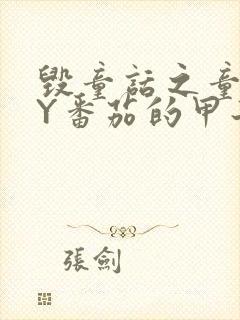 毀童話之童
Y番茄的甲
張劍